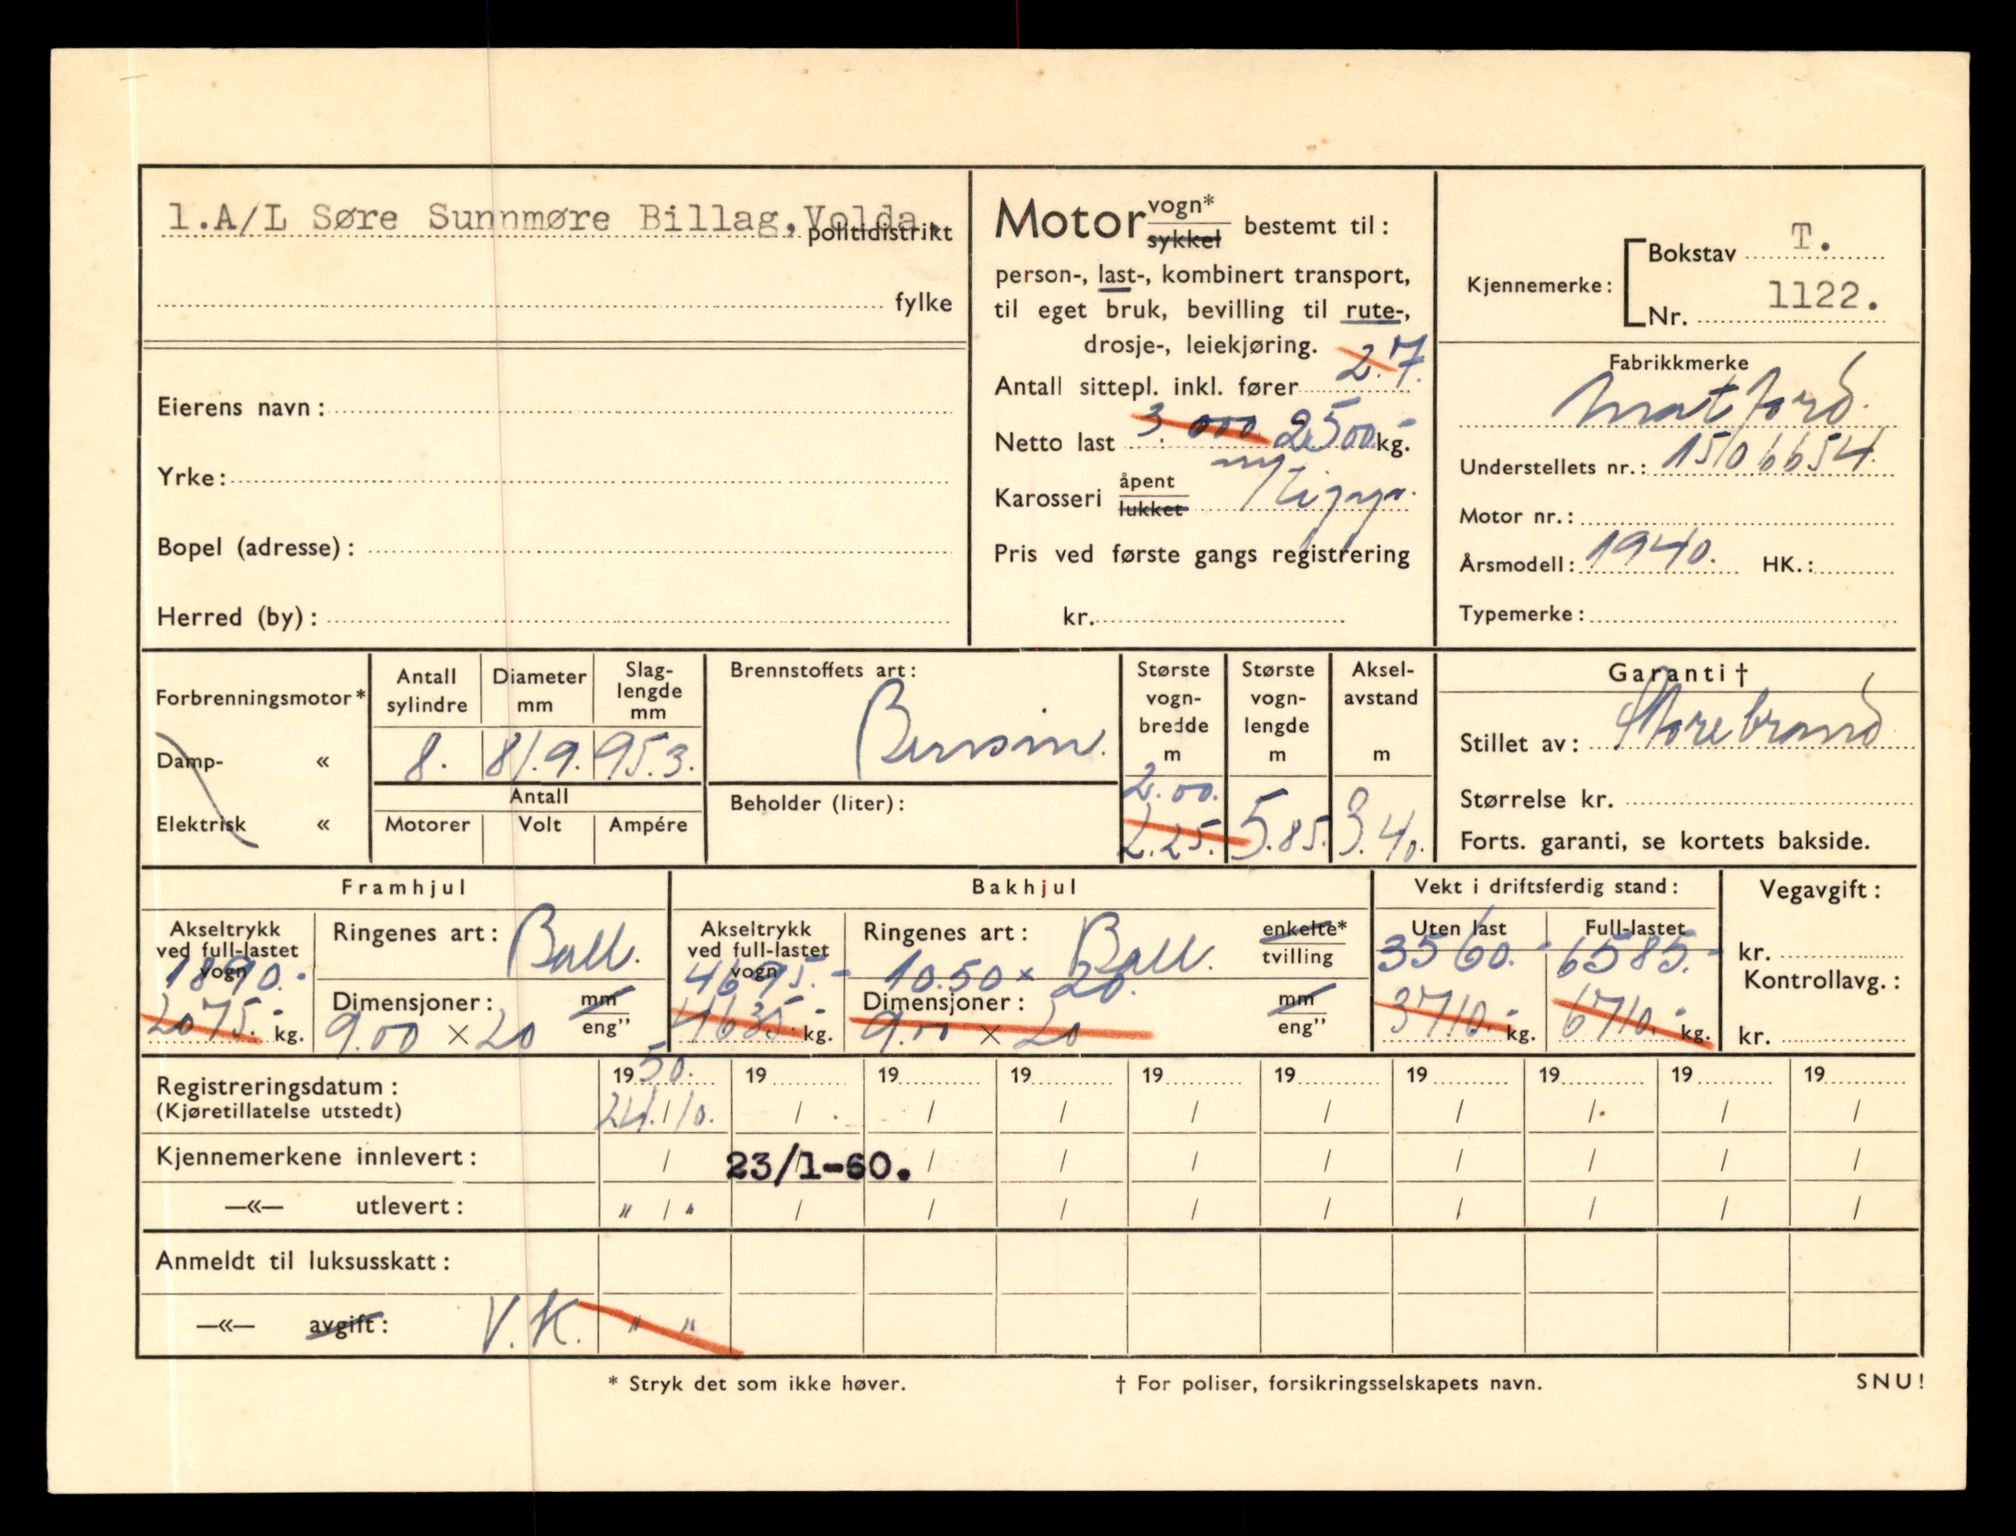 1.A/L Søre Sunnmøre Billag, Volda.
politidistrikt
fylke
Eierens navn:
Yrke:
Bopel (adresse):
Herred (by):
Motor vogn* sykkel bestemt til:
person-, last-, kombinert transport,
til eget bruk, bevilling til rute-,
drosje-, leiekjøring.
Antall sittepl. inkl. fører 2. 7.
Netto last 3.000 2500 kg.
Karosseri åpent lukket
Pris ved første gangs registrering
kr.
Kjennemerke: Bokstav T.
Nr. 1122.
Fabrikkmerke
Matford.
Understellets nr.: 1506654.
Motor nr.:
Årsmodell: 1940. HK.:
Typemerke:
Forbrenningsmotor*
Damp- «
Elektrisk «
Antall sylindre
Diameter mm
Slaglengde mm
8. 81.9. 95.3.
Antall
Motorer Volt Ampére
Brennstoffets art:
Bensin.
Beholder (liter):
Største vognbredde m
2.00.
2.25.
Største vognlengde m
5.85.
Akselavstand m
3.40.
Garanti †
Stillet av: Storebrand
Størrelse kr.
Forts. garanti, se kortets bakside.
Framhjul
Akseltrykk ved full-lastet vogn
1890.-
2075.- kg.
Ringenes art: Ball.
Dimensjoner: mm eng”
9.00 × 20
Bakhjul
Akseltrykk ved full-lastet vogn
4695.-
4635.- kg.
Ringenes art: Ball. enkelte* tvilling
10.50 × 20.
Dimensjoner: mm eng”
9.00 × 20
Vekt i driftsferdig stand:
Uten last Full-lastet
3560.- 6585.-
3710.- kg. 6710.- kg.
Vegavgift:
kr.
Kontrollavg.:
kr.
Registreringsdatum: 1950. 19 19 19 19 19 19 19 19 19
(Kjøretillatelse utstedt) 24./10. / / / / / / / / /
Kjennemerkene innlevert: / 23/1-60. / / / / / / / /
—«— utlevert: " / " / / / / / / / / /
Anmeldt til luksusskatt:
—«— avgift: V.K. " "
* Stryk det som ikke høver.
† For poliser, forsikringsselskapets navn.
SNU!